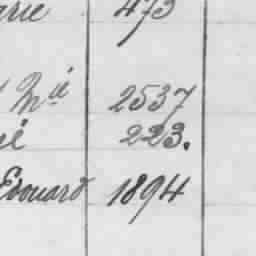 arie 473
Né 2537
é 223.
Edouard 1894